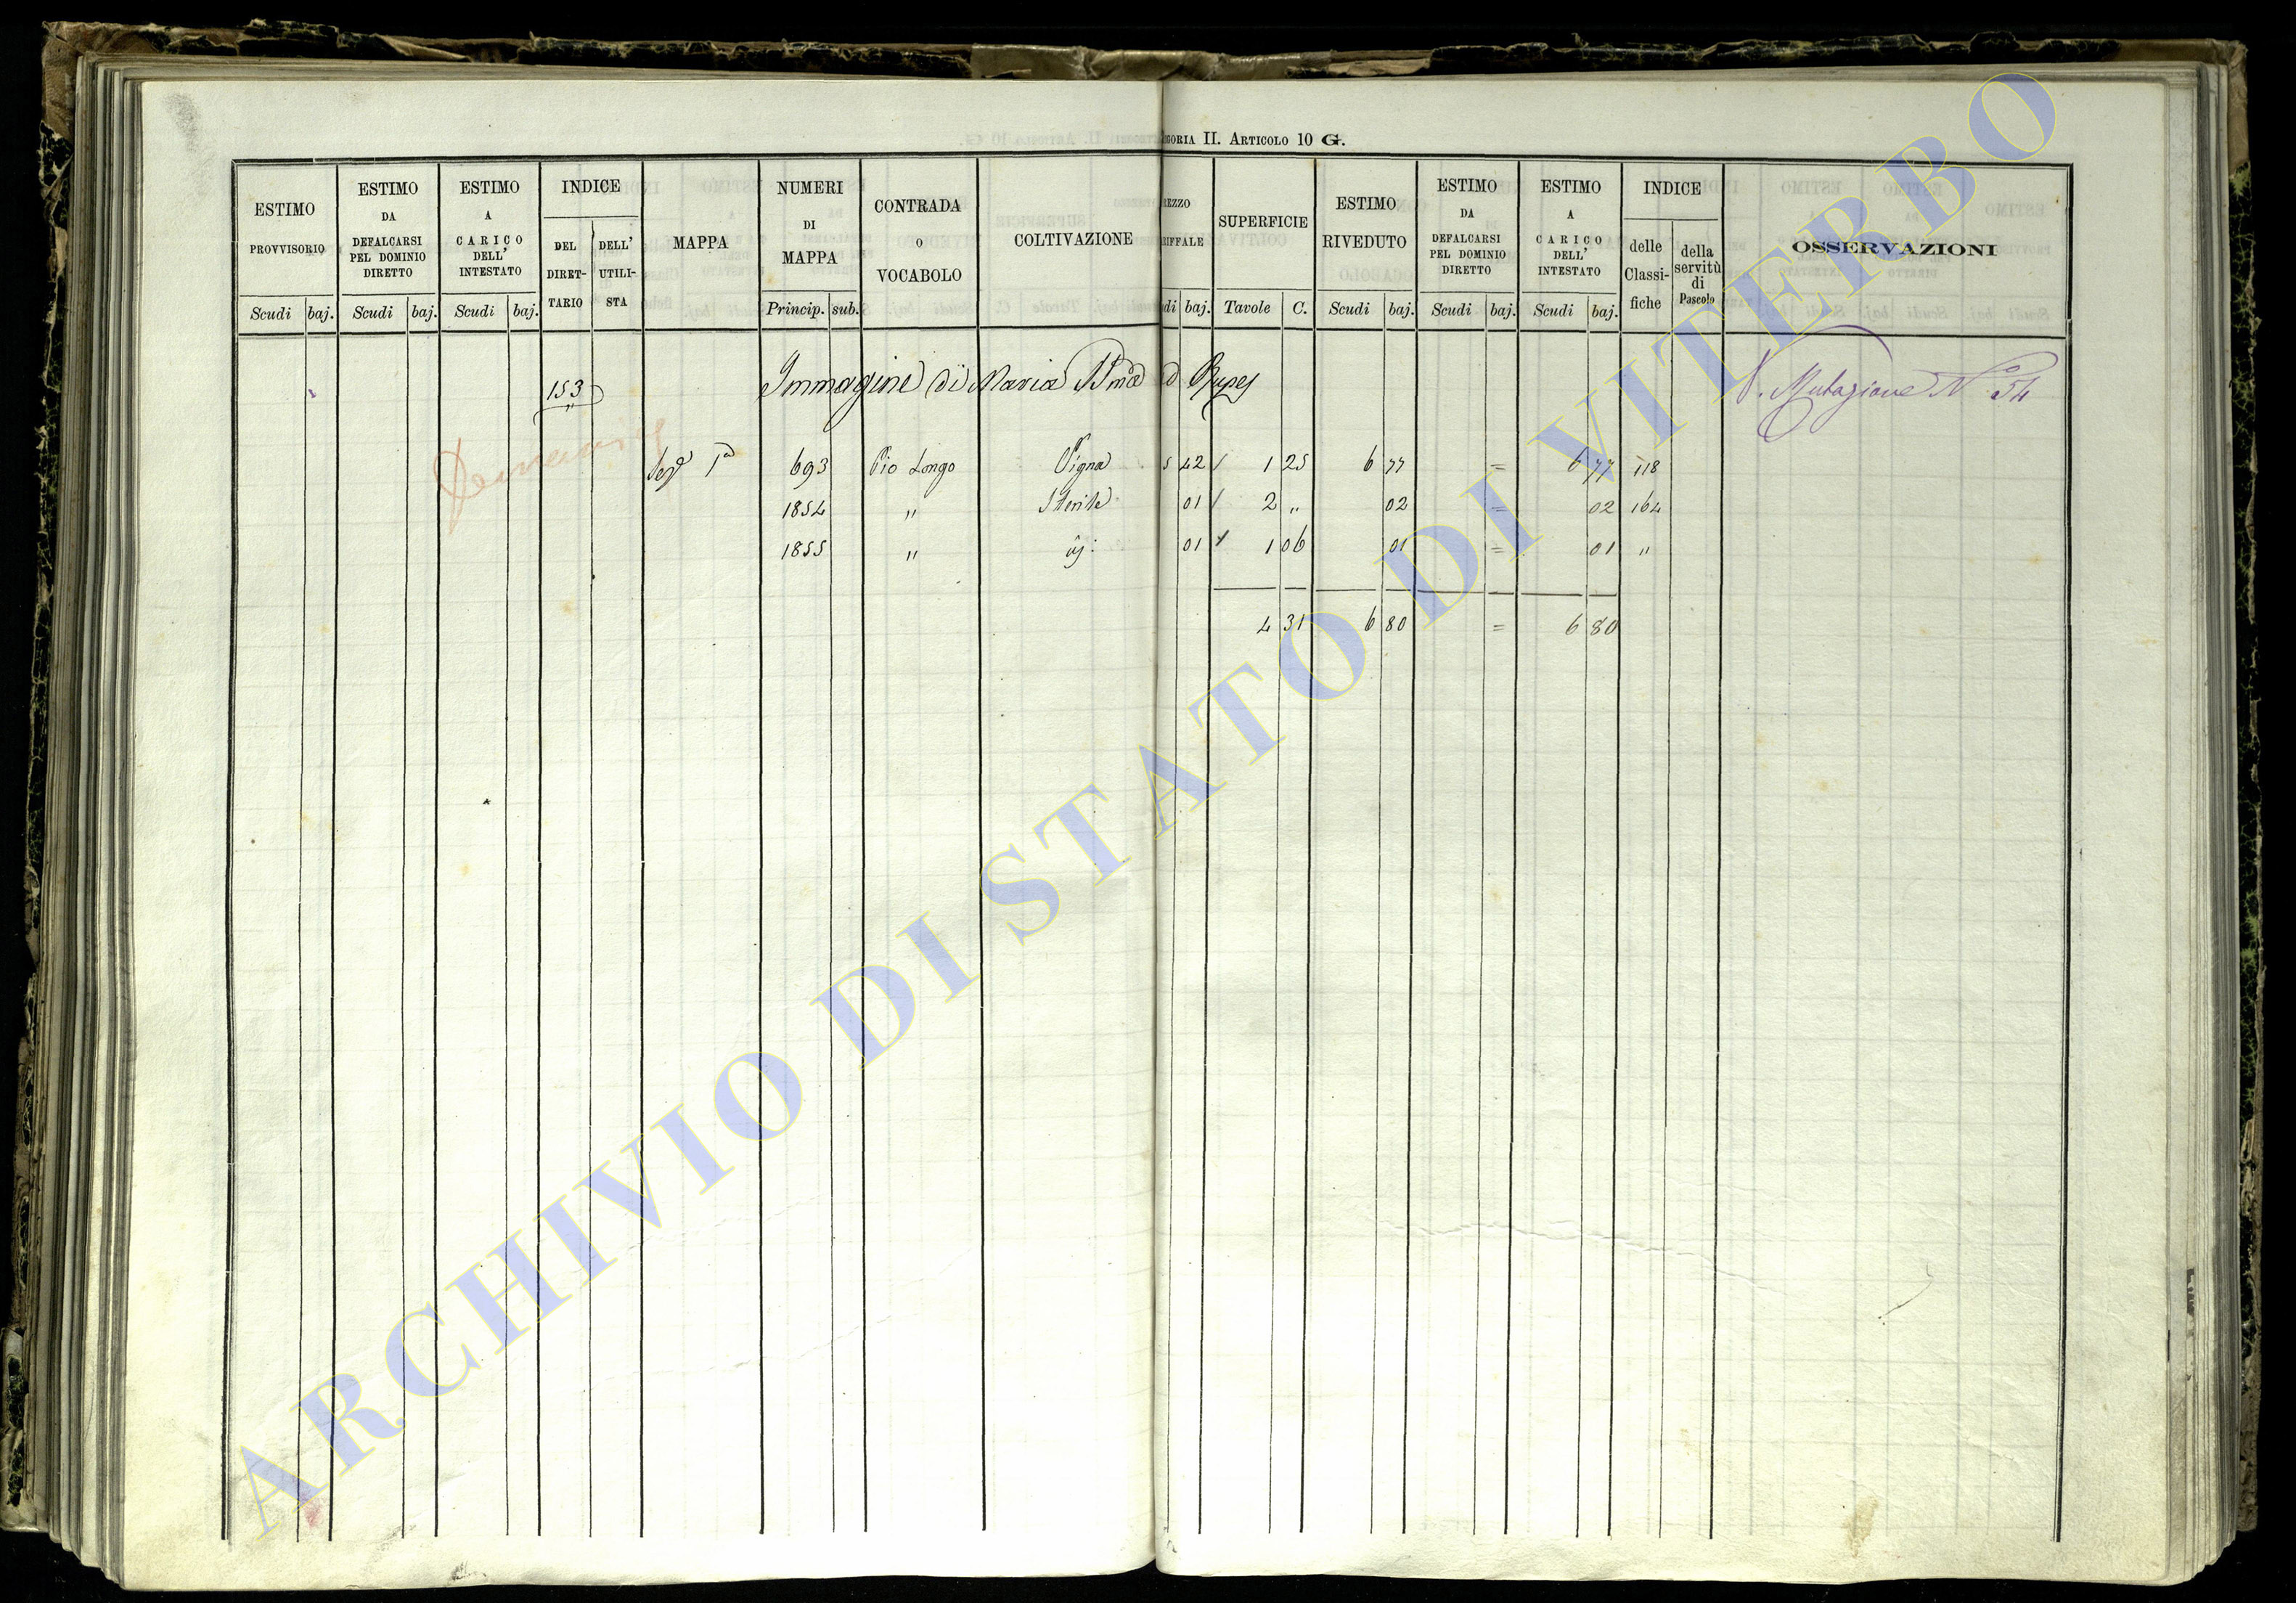 GORIA II. ARTICOLO 10 G.
ESTIMO PROVVISORIO
ESTIMO DA DEFALCARSI PEL DOMINIO DIRETTO
ESTIMO A CARICO DELL' INTESTATO
INDICE
DEL DIRETTARIO
DELL' UTILISTA
MAPPA
NUMERI DI MAPPA
CONTRADA O VOCABOLO
COLTIVAZIONE
REZZO RIFFALE
SUPERFICIE
ESTIMO RIVEDUTO
ESTIMO DA DEFALCARSI PEL DOMINIO DIRETTO
ESTIMO A CARICO DELL' INTESTATO
INDICE
delle Classifiche
della servitù di Pascolo
OSSERVAZIONI
Scudi baj. Scudi baj. Scudi baj. Princip. sub. di baj. Tavole C. Scudi baj. Scudi baj. Scudi baj.
153 Immagine di Maria SSma Rupes V. Mutazione N° 54
693 Pio Longo Vigna 5 42 1 25 6 77 = 6 77 118
1854 " Sterile 01 2 " 02 = 02 164
1855 " 01 1 06 01 = 01 "
4 31 6 80 = 6 80
ARCHIVIO DI STATO DI VITERBO